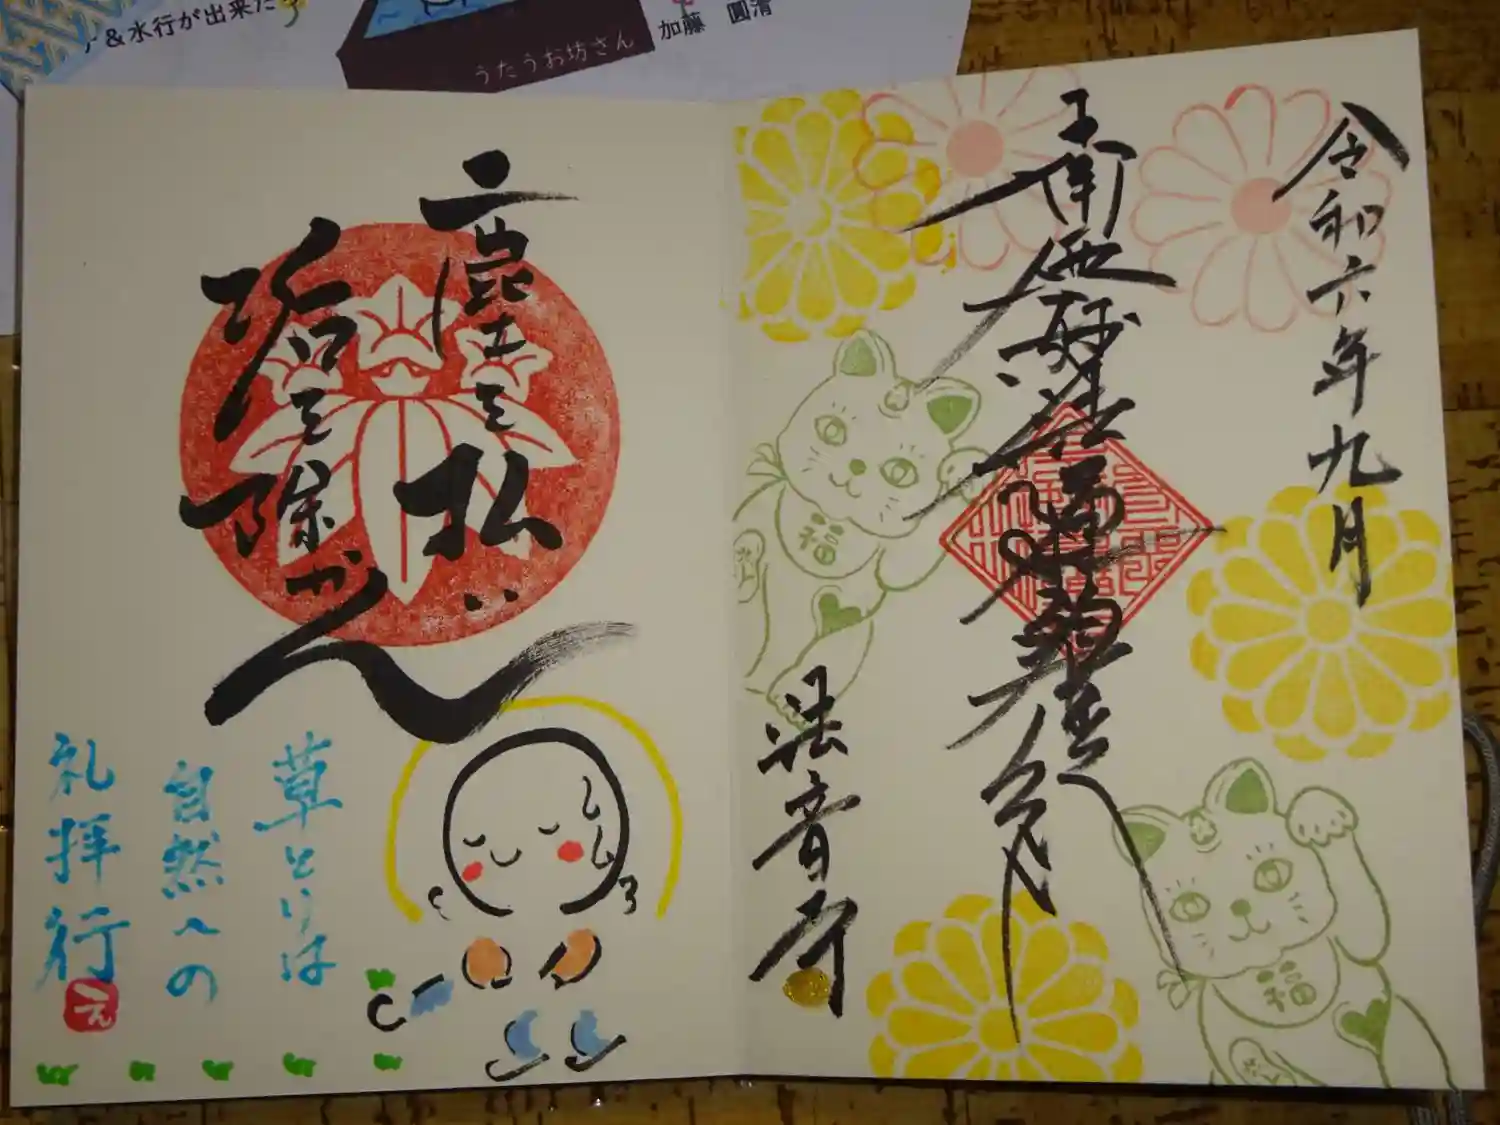 &水行が出来た
うたうお坊さん
加藤 圓清
令和六年九月
南無妙法蓮華経
法音寺
福
福
塵を払い
垢を除かん
草とりは
自然への
礼拝行
え